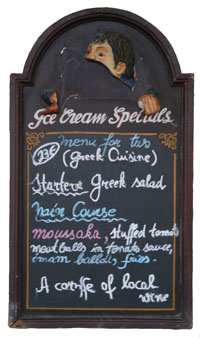 Ice Cream Specials
menu for two
23€ (Greek Cuisine)
Starters Greek salad
Main Course
moussaka, stuffed tomato
meat balls in tomato sauce,
imam baildi, fries.
A caraffe of local
wine